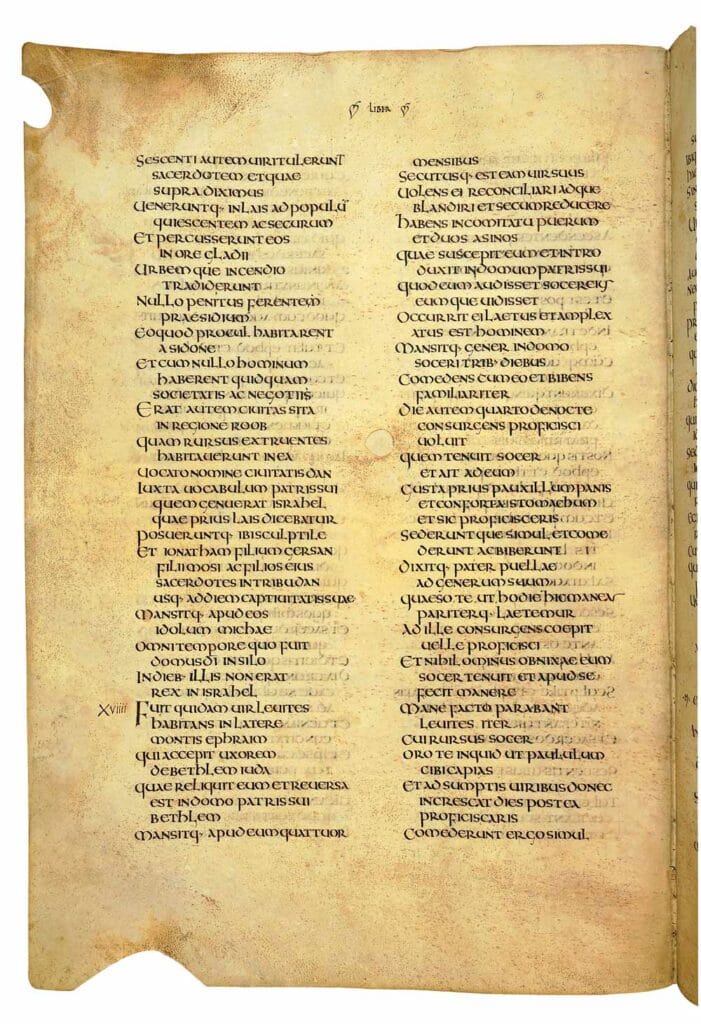 LIBER
SESCENTI AUTEM UIRI TULERUNT
SACERDOTEM ET QUAE
SUPRA DIXIMUS
UENERUNTQ· IN LAIS AD POPULŪ
QUIESCENTEM AC SECURUM
ET PERCUSSERUNT EOS
IN ORE GLADII
URBEMQUE INCENDIO
TRADIDERUNT
NULLO PENITUS FERENTEM
PRAESIDIUM
EO QUOD PROCUL HABITARENT
A SIDONE
ET CUM NULLO HOMINUM
HABERENT QUIDQUAM
SOCIETATIS AC NEGOTIIS
ERAT AUTEM CIUITAS SITA
IN REGIONE ROOB
QUAM RURSUS EXTRUENTES
HABITAUERUNT IN EA
UOCATO NOMINE CIUITATIS DAN
IUXTA UOCABULUM PATRIS SUI
QUEM GENUERAT ISRAHEL
QUAE PRIUS LAIS DICEBATUR
POSUERUNTQ· IBI SCULPTILE
ET IONATHAM FILIUM GERSAN
FILII MOSI AC FILIOS EIUS
SACERDOTES IN TRIBU DAN
USQ· AD DIEM CAPTIUITATIS SUAE
MANSITQ· APUD EOS
IDOLUM MICHAE
OMNI TEMPORE QUO FUIT
DOMUS DI IN SILO
IN DIEB· ILLIS NON ERAT
REX IN ISRAHEL
XVIIII FUIT QUIDAM UIR LEUITES
HABITANS IN LATERE
MONTIS EPHRAIM
QUI ACCEPIT UXOREM
DE BETHLEM IUDA
QUAE RELIQUIT EUM ET REUERSA
EST IN DOMO PATRIS SUI
BETHLEM
MANSITQ· APUD EUM QUATTUOR
MENSIBUS
SECUTUSQ· EST EAM UIR SUUS
UOLENS EI RECONCILIARI ADQUE
BLANDIRI ET SECUM REDUCERE
HABENS IN COMITATU PUERUM
ET DUOS ASINOS
QUAE SUSCEPIT EUM ET INTRO
DUXIT IN DOMUM PATRIS SUI
QUOD CUM AUDISSET SOCER EIUS
EUMQUE UIDISSET
OCCURRIT EI LAETUS ET AMPLEX
ATUS EST HOMINEM
MANSITQ· GENER IN DOMO
SOCERI TRIB· DIEBUS
COMEDENS CUM EO ET BIBENS
FAMILIARITER
DIE AUTEM QUARTO DE NOCTE
CONSURGENS PROFICISCI
UOLUIT
QUEM TENUIT SOCER
ET AIT AD EUM
GUSTA PRIUS PAUXILLUM PANIS
ET CONFORTA STOMACHUM
ET SIC PROFICISCERIS
SEDERUNTQUE SIMUL ET COME
DERUNT AC BIBERUNT
DIXITQ· PATER PUELLAE
AD GENERUM SUUM
QUAESO TE UT HODIE HIC MANEAS
PARITERQ· LAETEMUR
AD ILLE CONSURGENS COEPIT
UELLE PROFICISCI
ET NIHILOMINUS OBNIXAE EUM
SOCER TENUIT ET APUD SE
FECIT MANERE
MANE FACTO PARABANT
LEUITES ITER
CUI RURSUS SOCER
ORO TE INQUID UT PAULULUM
CIBI CAPIAS
ET ADSUMPTIS UIRIBUS DONEC
INCRESCAT DIES POSTEA
PROFICISCARIS
COMEDERUNT ERGO SIMUL